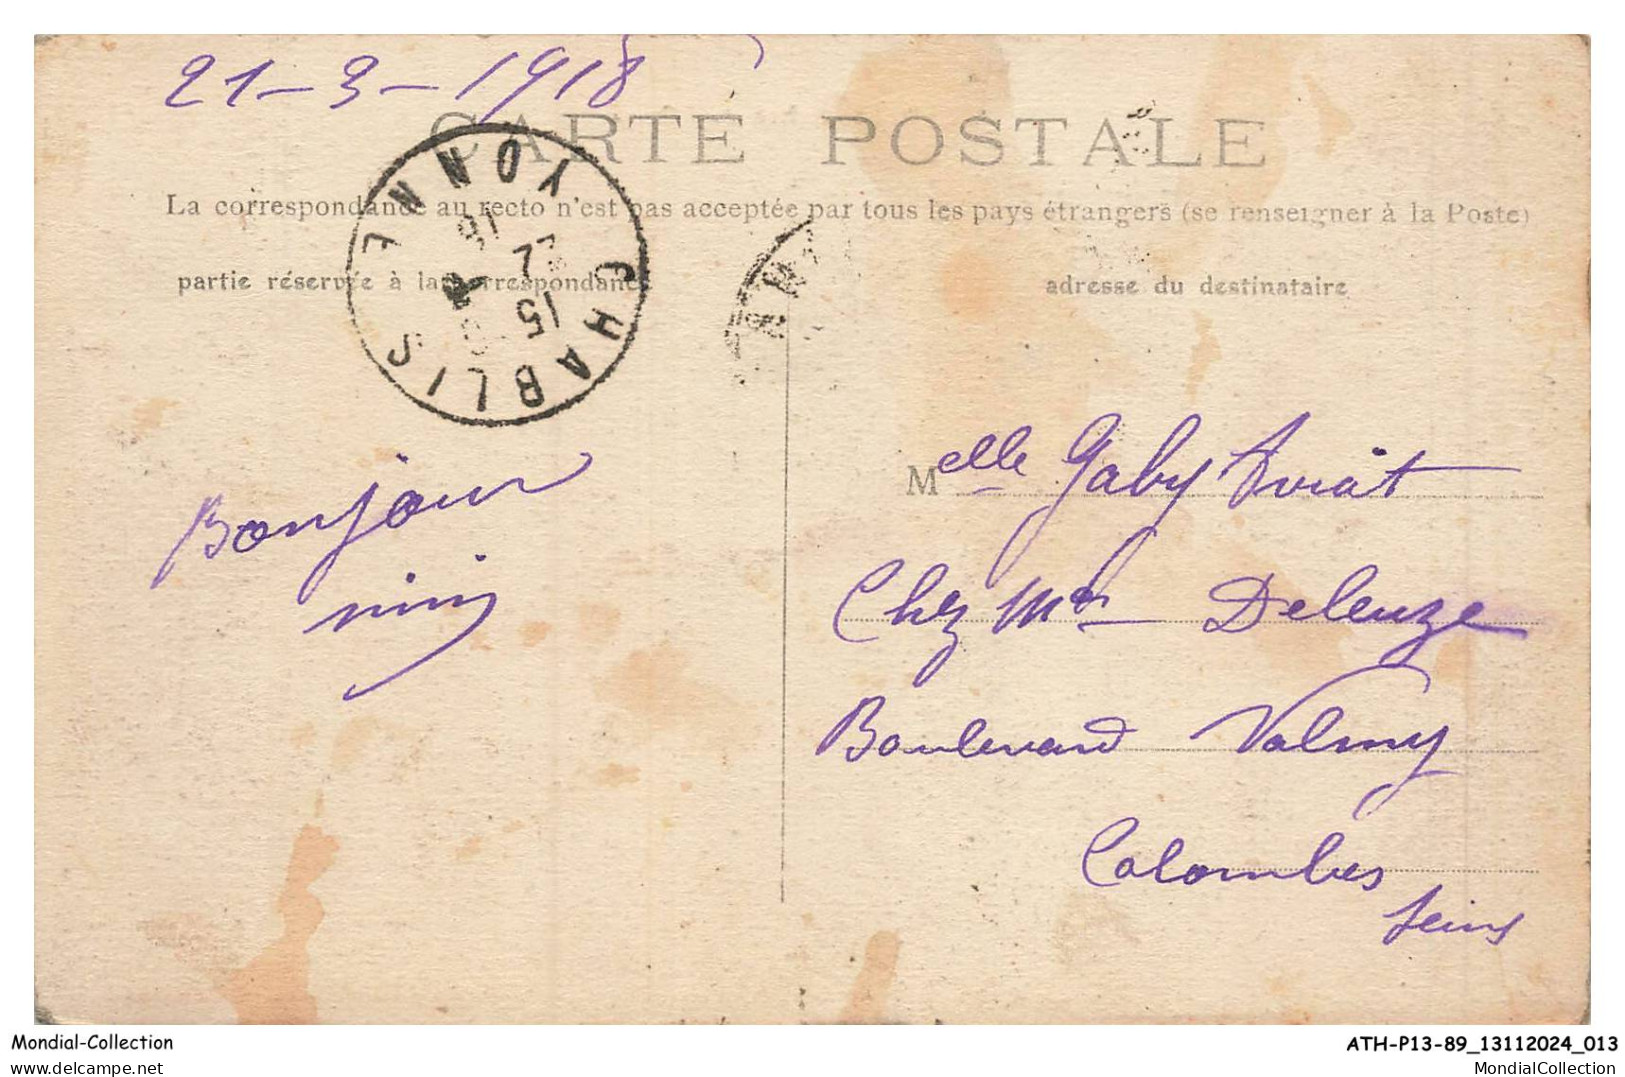 21-3-1918
CARTE POSTALE
La correspondance au recto n'est pas acceptée par tous les pays étrangers (se renseigner à la Poste)
partie réservée à la correspondance
adresse du destinataire
CHABLIS
YONNE
15
Bonjour
mimi
Melle Gaby Aviat
Chez Mme Deleuze
Boulevard Valmy
Colombes
Seine
Mondial-Collection
delcampe.net
ATH-P13-89_13112024_013
MondialCollection